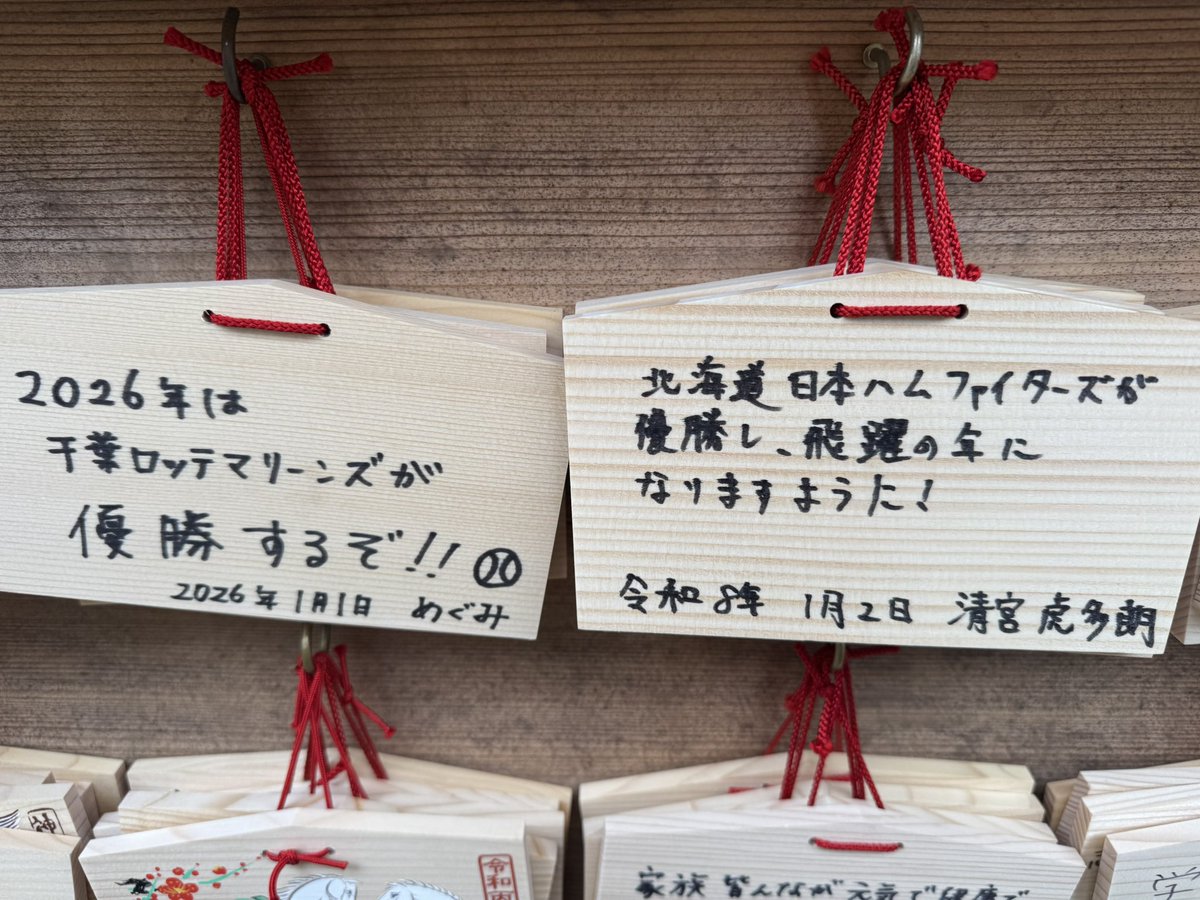 2026年は
千葉ロッテマリーンズが
優勝するぞ!!
2026年1月1日 めぐみ
北海道日本ハムファイターズが
優勝し、飛躍の年に
なりますように!
令和8年 1月2日 清宮虎多朗
神
令和丙
家族皆んなが元気で健康で
学